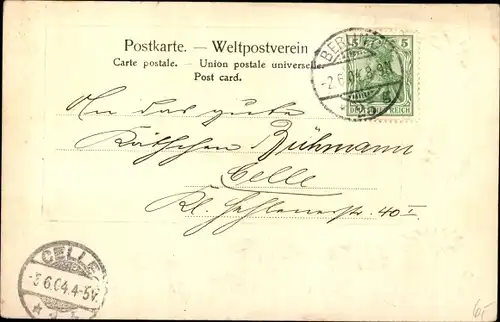 Postkarte. — Weltpostverein
Carte postale. — Union postale universelle.
Post card.
5 5
BERLIN
-2.6.04.8-9N
REICH
An das gute
Käthchen Bühmann
Celle
Kl. 40 I
CELLE
-3.6.04.4-5V.